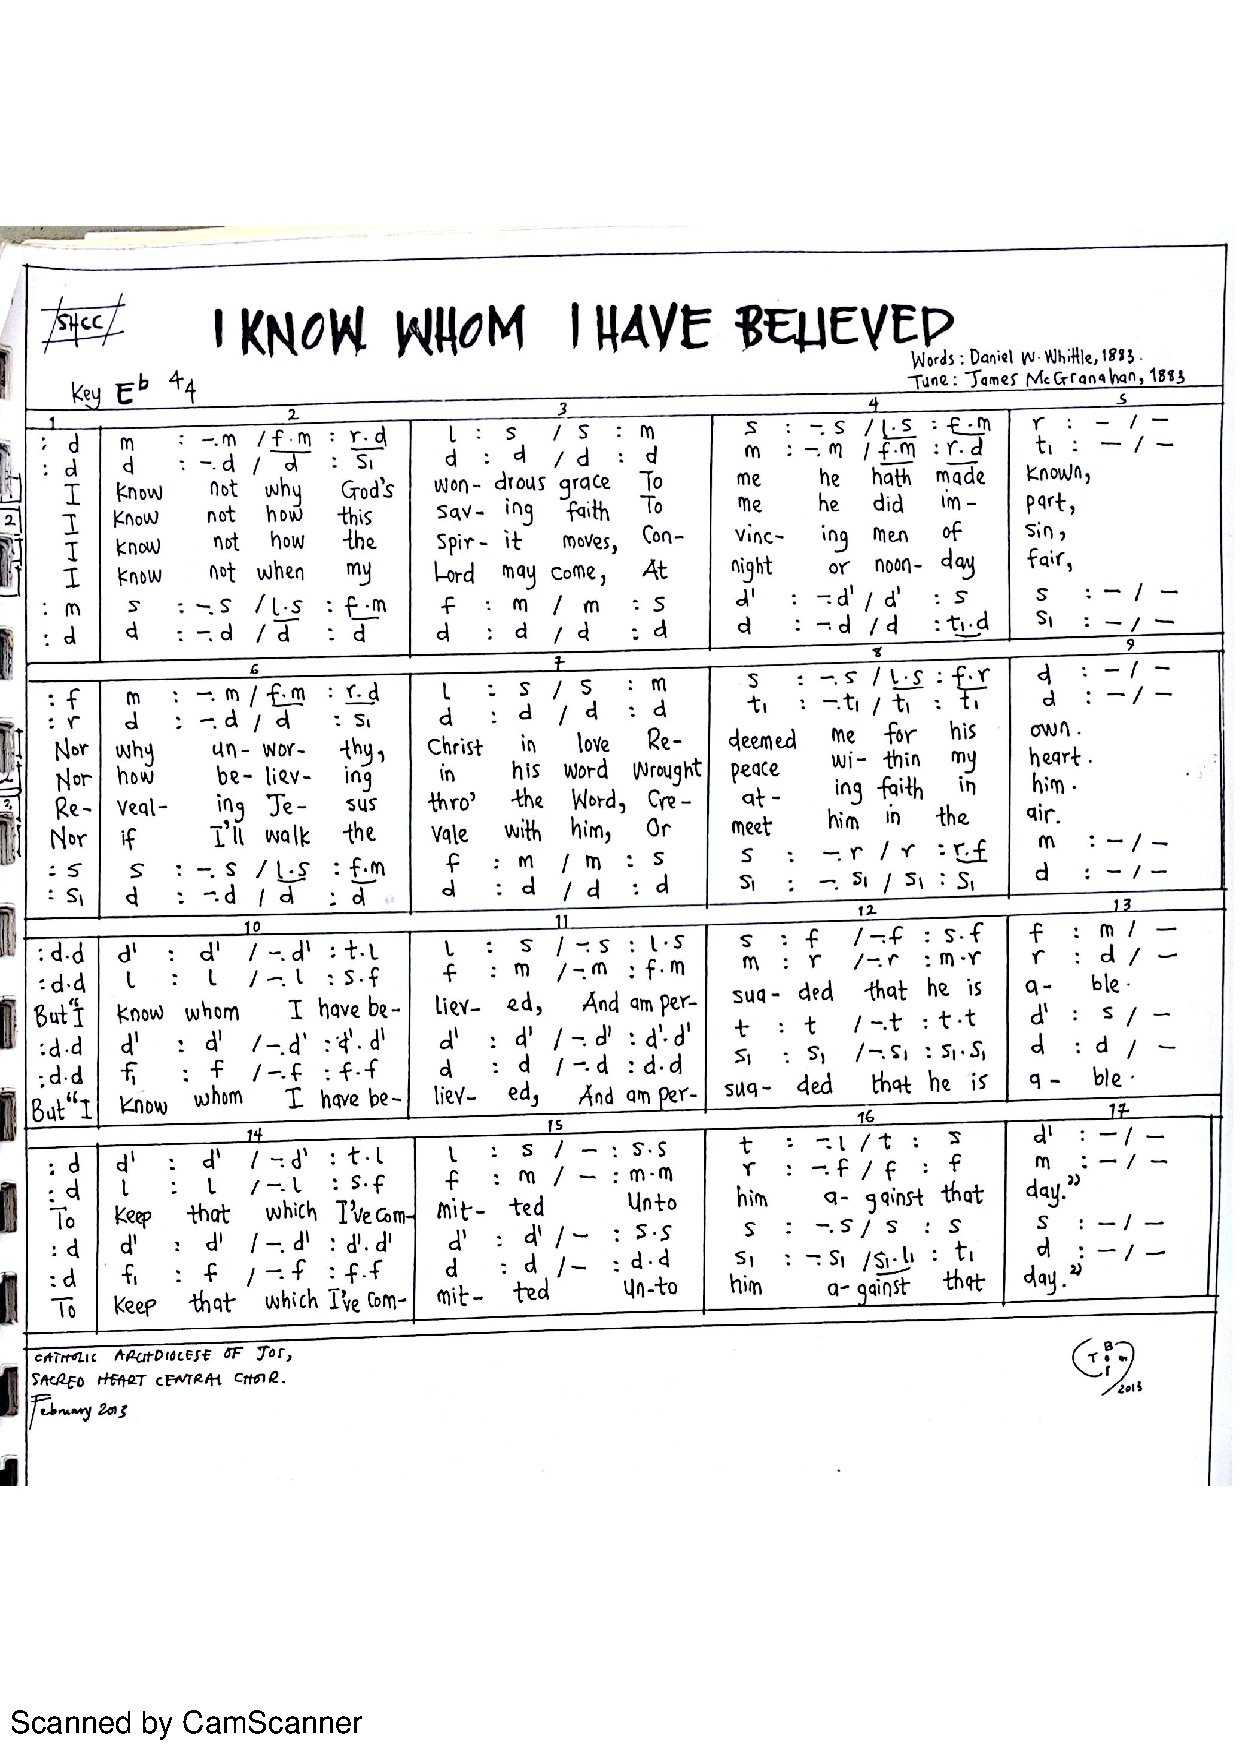 SHCC
I KNOW WHOM I HAVE BELIEVED
Words: Daniel W. Whittle, 1883.
Tune: James McGranahan, 1883
Key Eb 4/4
1 2 3 4 5
: d m : -. m / f.m : r.d l : s / s : m s : -. s / l.s : f.m r : - / -
: d d : -. d / d : s₁ d : d / d : d m : -. m / f.m : r.d t₁ : - / -
I Know not why God's won- drous grace To me he hath made known,
2 I Know not how this sav- ing faith To me he did im- part,
I Know not how the Spir- it moves, Con- vinc- ing men of sin,
I Know not when my Lord may come, At night or noon- day fair,
: m s : -. s / l.s : f.m f : m / m : s d' : -. d' / d' : s s : - / -
: d d : -. d / d : d d : d / d : d d : -. d / d : t₁.d s₁ : - / -
6 7 8 9
: f m : -. m / f.m : r.d l : s / s : m s : -. s / l.s : f.r d : - / -
: r d : -. d / d : s₁ d : d / d : d t₁ : -. t₁ / t₁ : t₁ d : - / -
Nor why un- wor- thy, Christ in love Re- deemed me for his own.
Nor how be- liev- ing in his word Wrought peace wi- thin my heart.
Re- veal- ing Je- sus thro' the Word, Cre- at- ing faith in him.
Nor if I'll walk the vale with him, Or meet him in the air.
: s s : -. s / l.s : f.m f : m / m : s s : -. r / r : r.f m : - / -
: s₁ d : -. d / d : d d : d / d : d s₁ : -. s₁ / s₁ : s₁ d : - / -
10 11 12 13
: d.d d' : d' / -. d' : t.l l : s / -. s : l.s s : f / -. f : s.f f : m / -
: d.d l : l / -. l : s.f f : m / -. m : f.m m : r / -. r : m.r r : d / -
But "I Know whom I have be- liev- ed, And am per- sua- ded that he is a- ble.
: d.d d' : d' / -. d' : d'.d' d' : d' / -. d' : d'.d' t : t / -. t : t.t d' : s / -
: d.d f₁ : f / -. f : f.f d : d / -. d : d.d s₁ : s₁ / -. s₁ : s₁.s₁ d : d / -
But "I Know whom I have be- liev- ed, And am per- sua- ded that he is a- ble.
14 15 16 17
: d d' : d' / -. d' : t.l l : s / - : s.s t : -. l / t : s d' : - / -
: d l : l / -. l : s.f f : m / - : m.m r : -. f / f : f m : - / -
To Keep that which I've com- mit- ted Unto him a- gainst that day."
: d d' : d' / -. d' : d'.d' d' : d' / - : s.s s : -. s / s : s s : - / -
: d f₁ : f / -. f : f.f d : d / - : d.d s₁ : -. s₁ / s₁.l₁ : t₁ d : - / -
To Keep that which I've com- mit- ted un-to him a- gainst that day."
CATHOLIC ARCHDIOCESE OF JOS,
SACRED HEART CENTRAL CHOIR.
February 2013
2013
Scanned by CamScanner